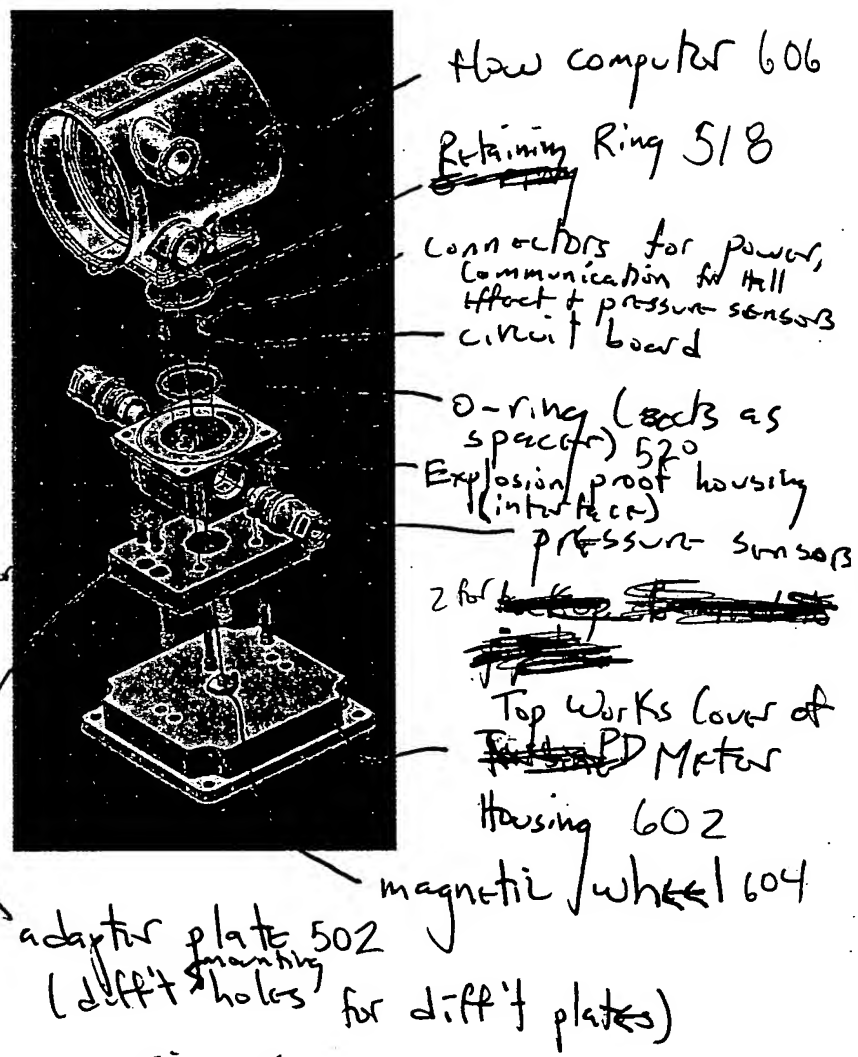 flow computer 606
Retaining Ring 518
connectors for power,
communication for Hall
Effect + pressure sensors
circuit board
O-ring (acts as
spacer) 520
Explosion proof housing
(interface)
pressure sensors
2 for
Top Works Cover of
PD Meter
Housing 602
magnetic wheel 604
adaptor plate 502
(diff't mounting holes for diff't plates)